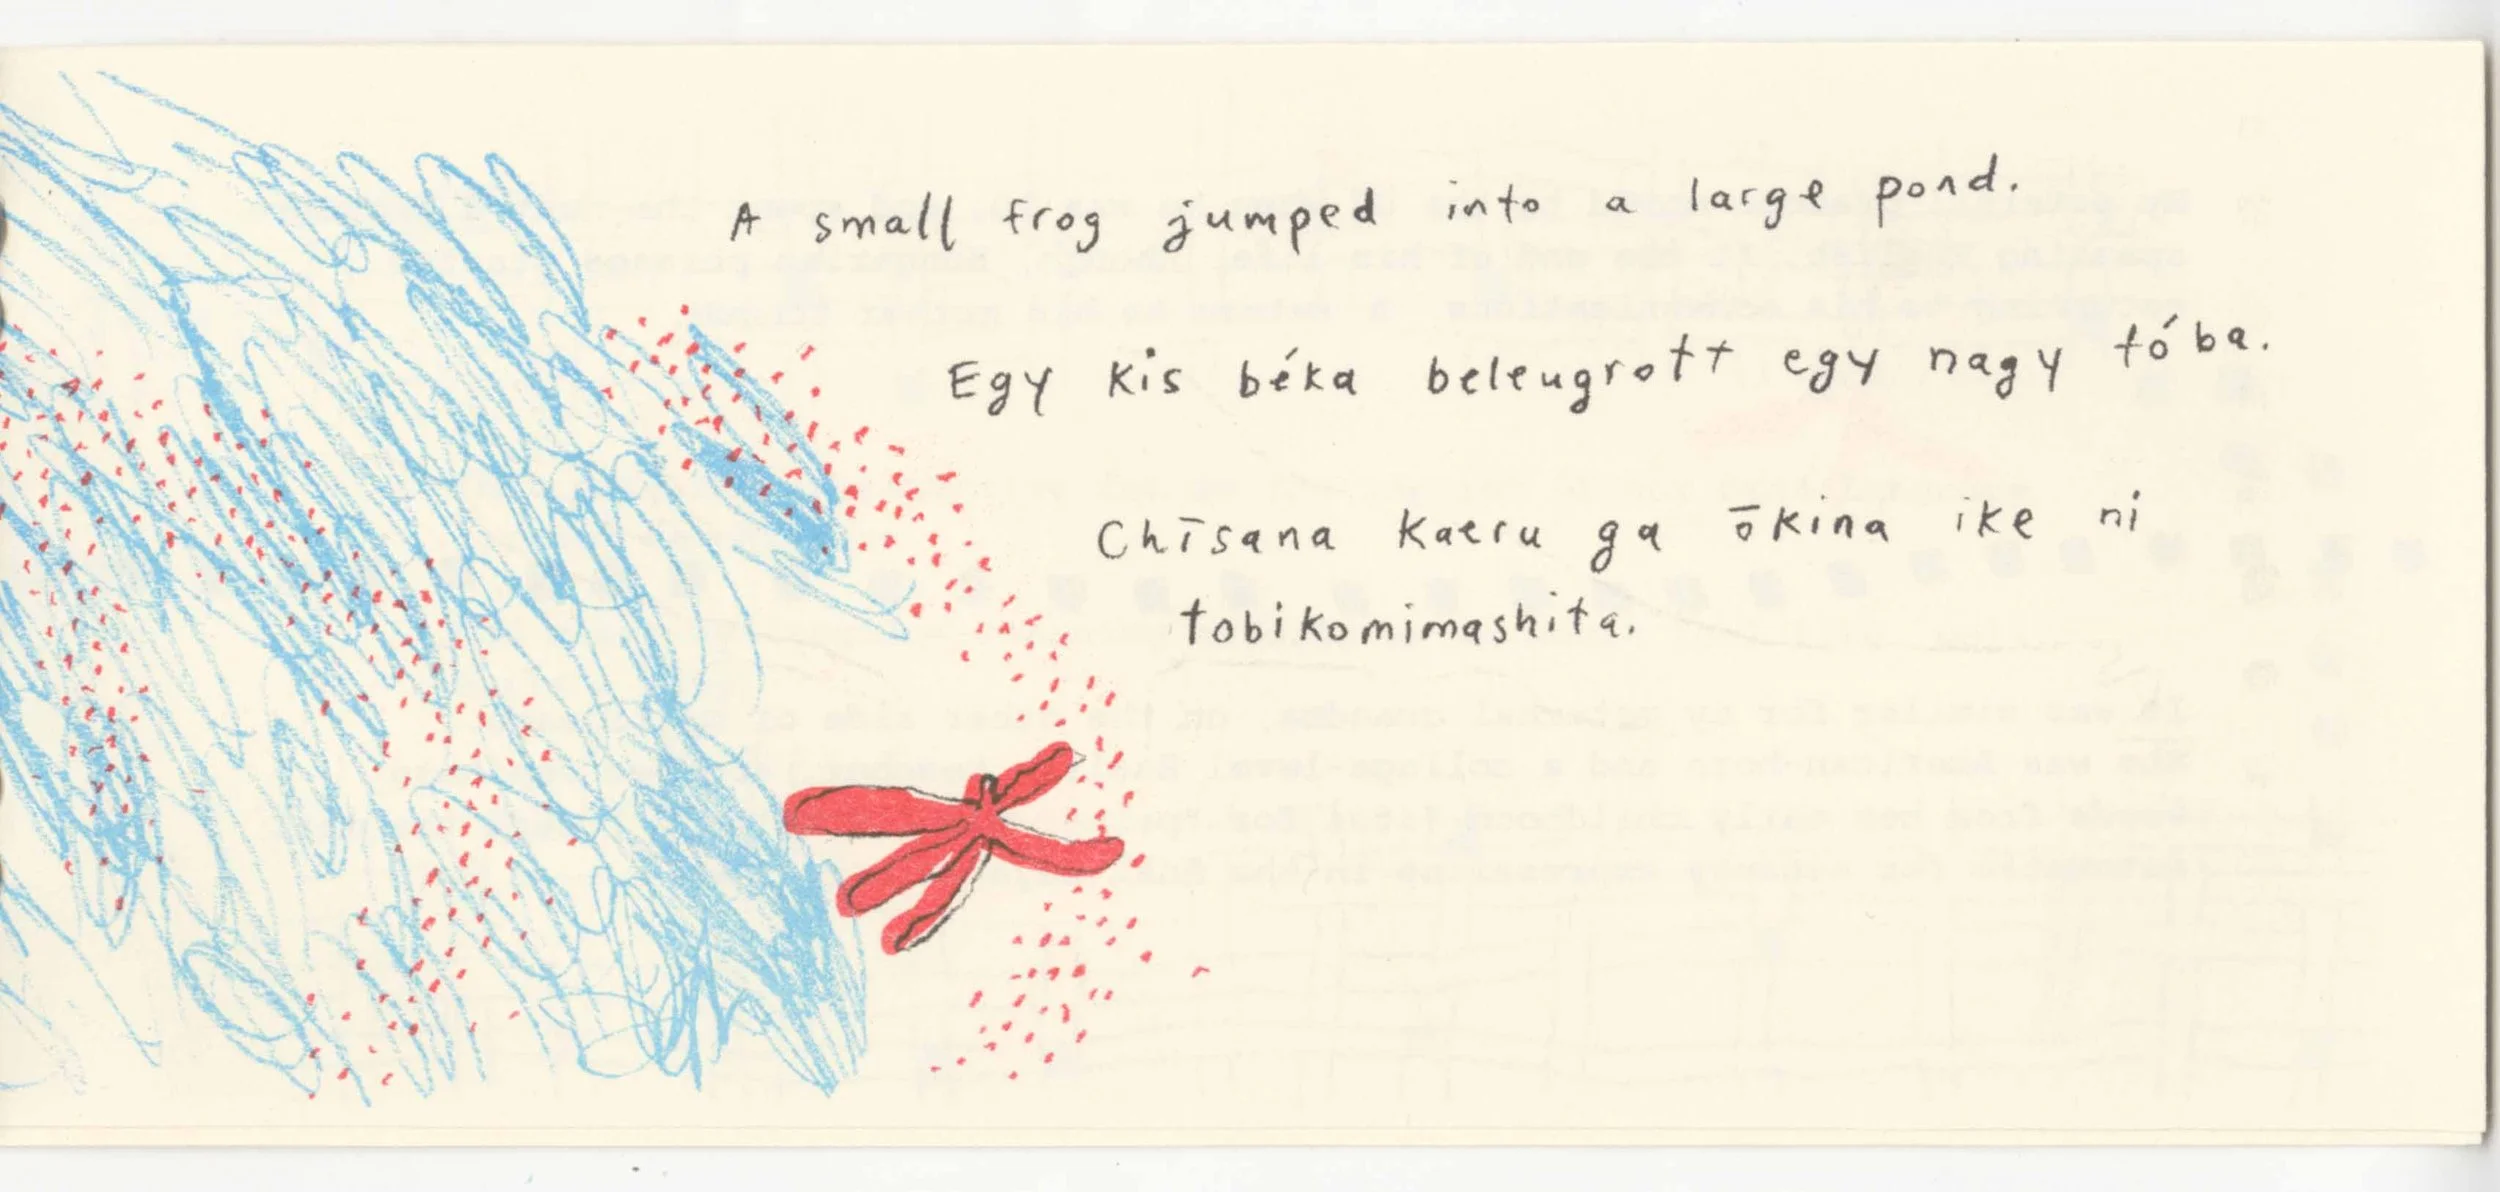 A small frog jumped into a large pond.
Egy kis béka beleugrott egy nagy tóba.
Chīsana kaeru ga ōkina ike ni
tobikomimashita.